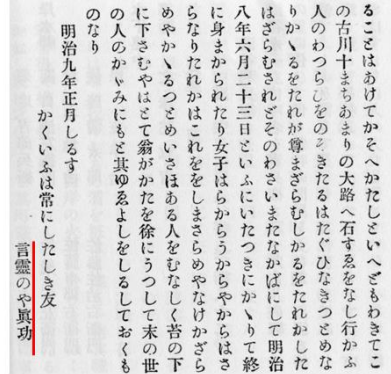 ることはあげてかそへかたしといへどもわきてこ
の古川十まちあまりの大路へ石すゑをなし行かふ
人のわづらひをのぞきたるはたぐひなきつとめな
りかゝるをたれが尊まざらむしかるをたれかした
はざらむされどそのわさいまたなかばにして明治
八年六月二十三日といふにいたつきにかゝりて終
に身まかられたり女子はらからうからやからはさ
らなりたれかはこれををしまさらめやなけかざら
めやかゝるつとめいさほある人をむなしく苔の下
に下さむやはとて翁がかたを徐にうつして末の世
の人のかゞみにもと其ゆゑよしをしるしておくも
のなり
明治九年正月しるす
かくいふは常にしたしき友
言靈のや眞功